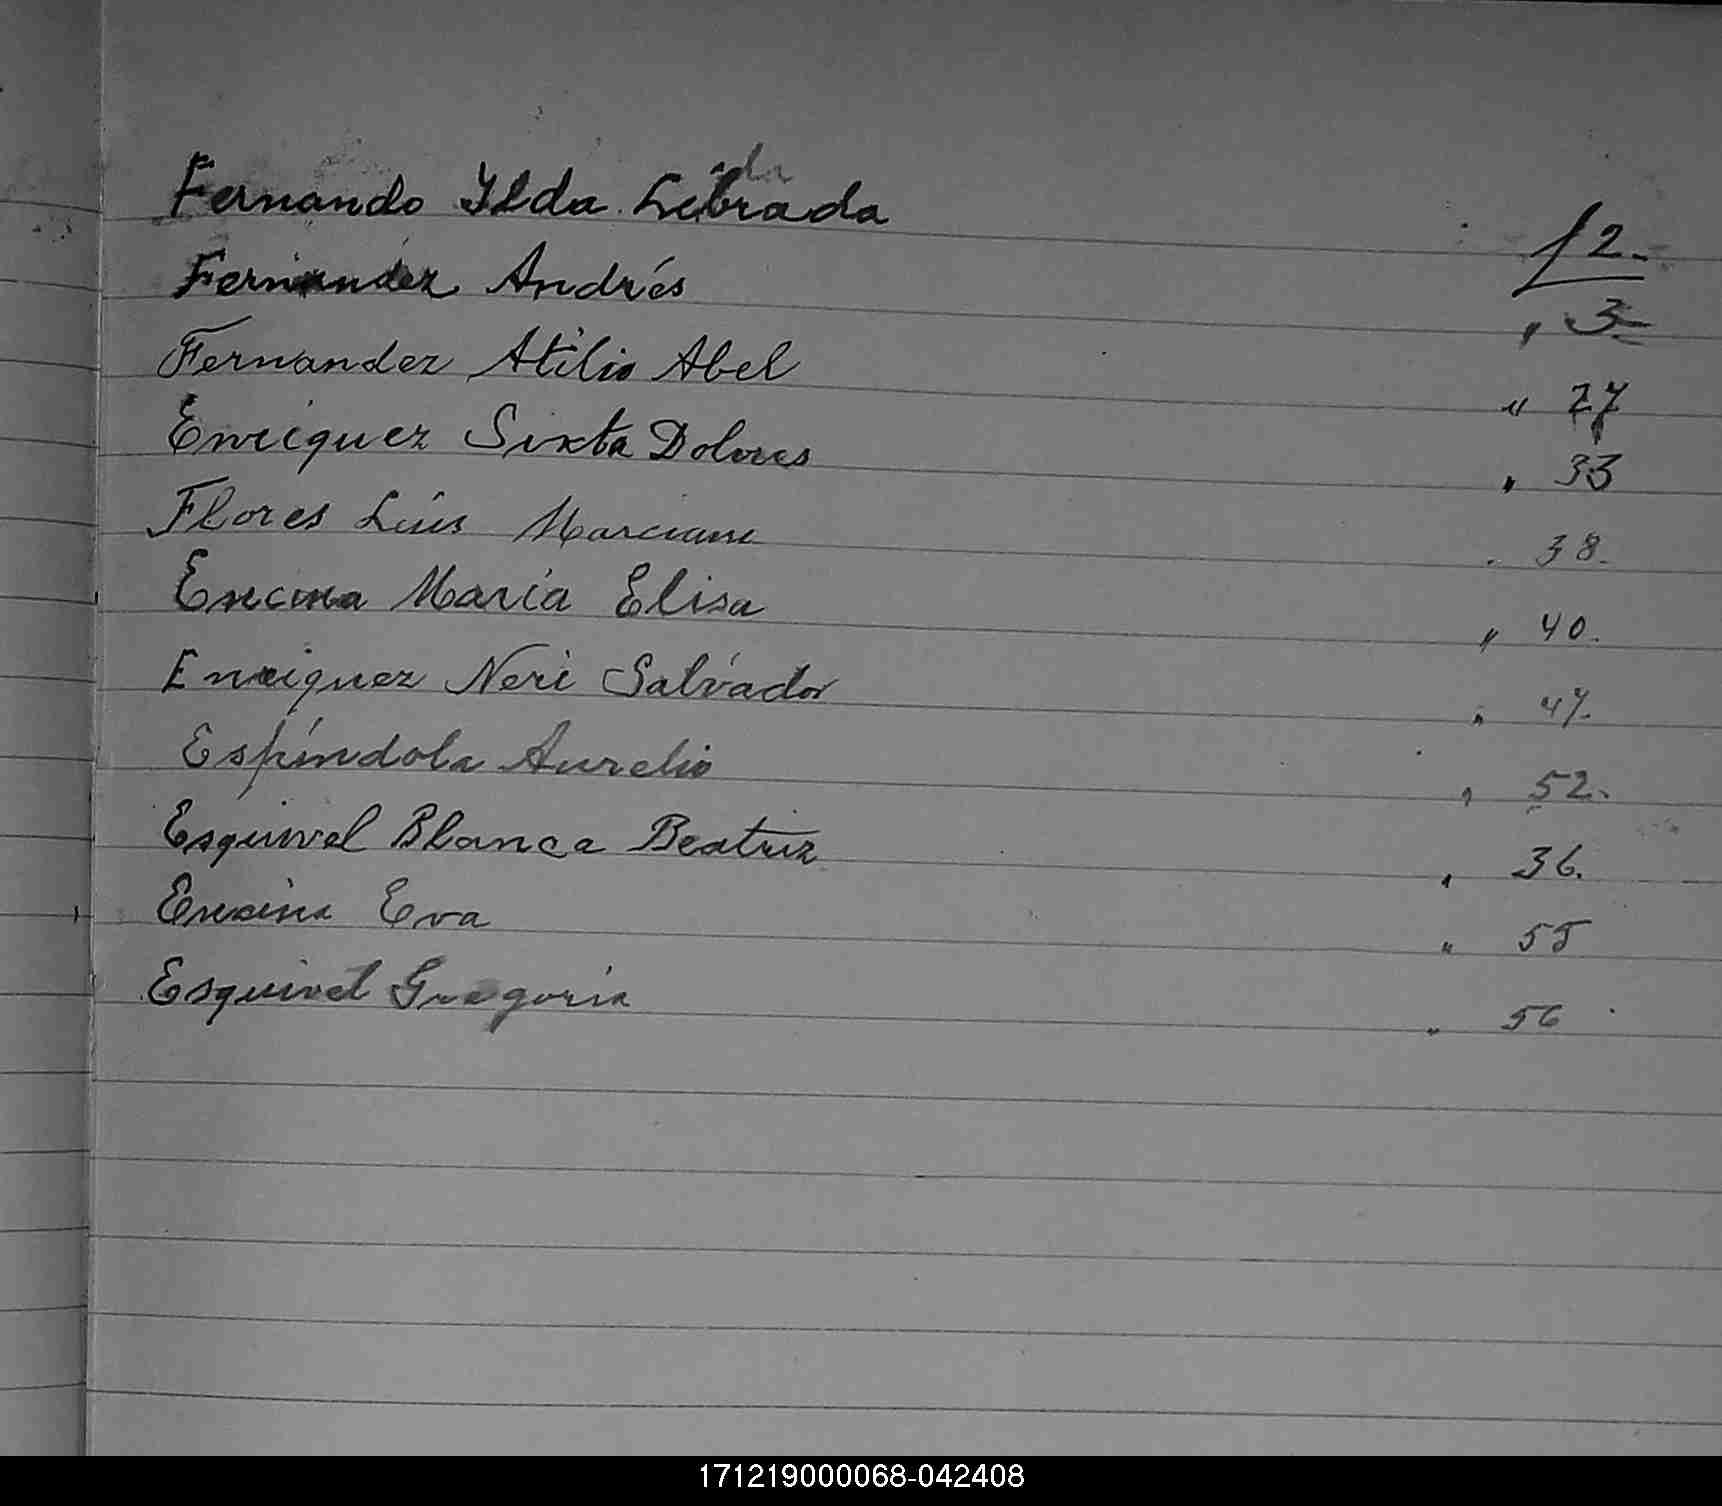 Fernando Ylda Librada f 2.
Fernandez Andrés " 3
Fernandez Atilio Abel " 27
Enriquez Sixta Dolores " 33
Flores Luis Marciano " 38.
Encina Maria Elisa " 40.
Enriquez Neri Salvador " 47.
Espíndola Aurelio " 52.
Esquivel Blanca Beatriz " 36.
Encina Eva " 55
Esquivel Gregoria " 56
171219000068-042408